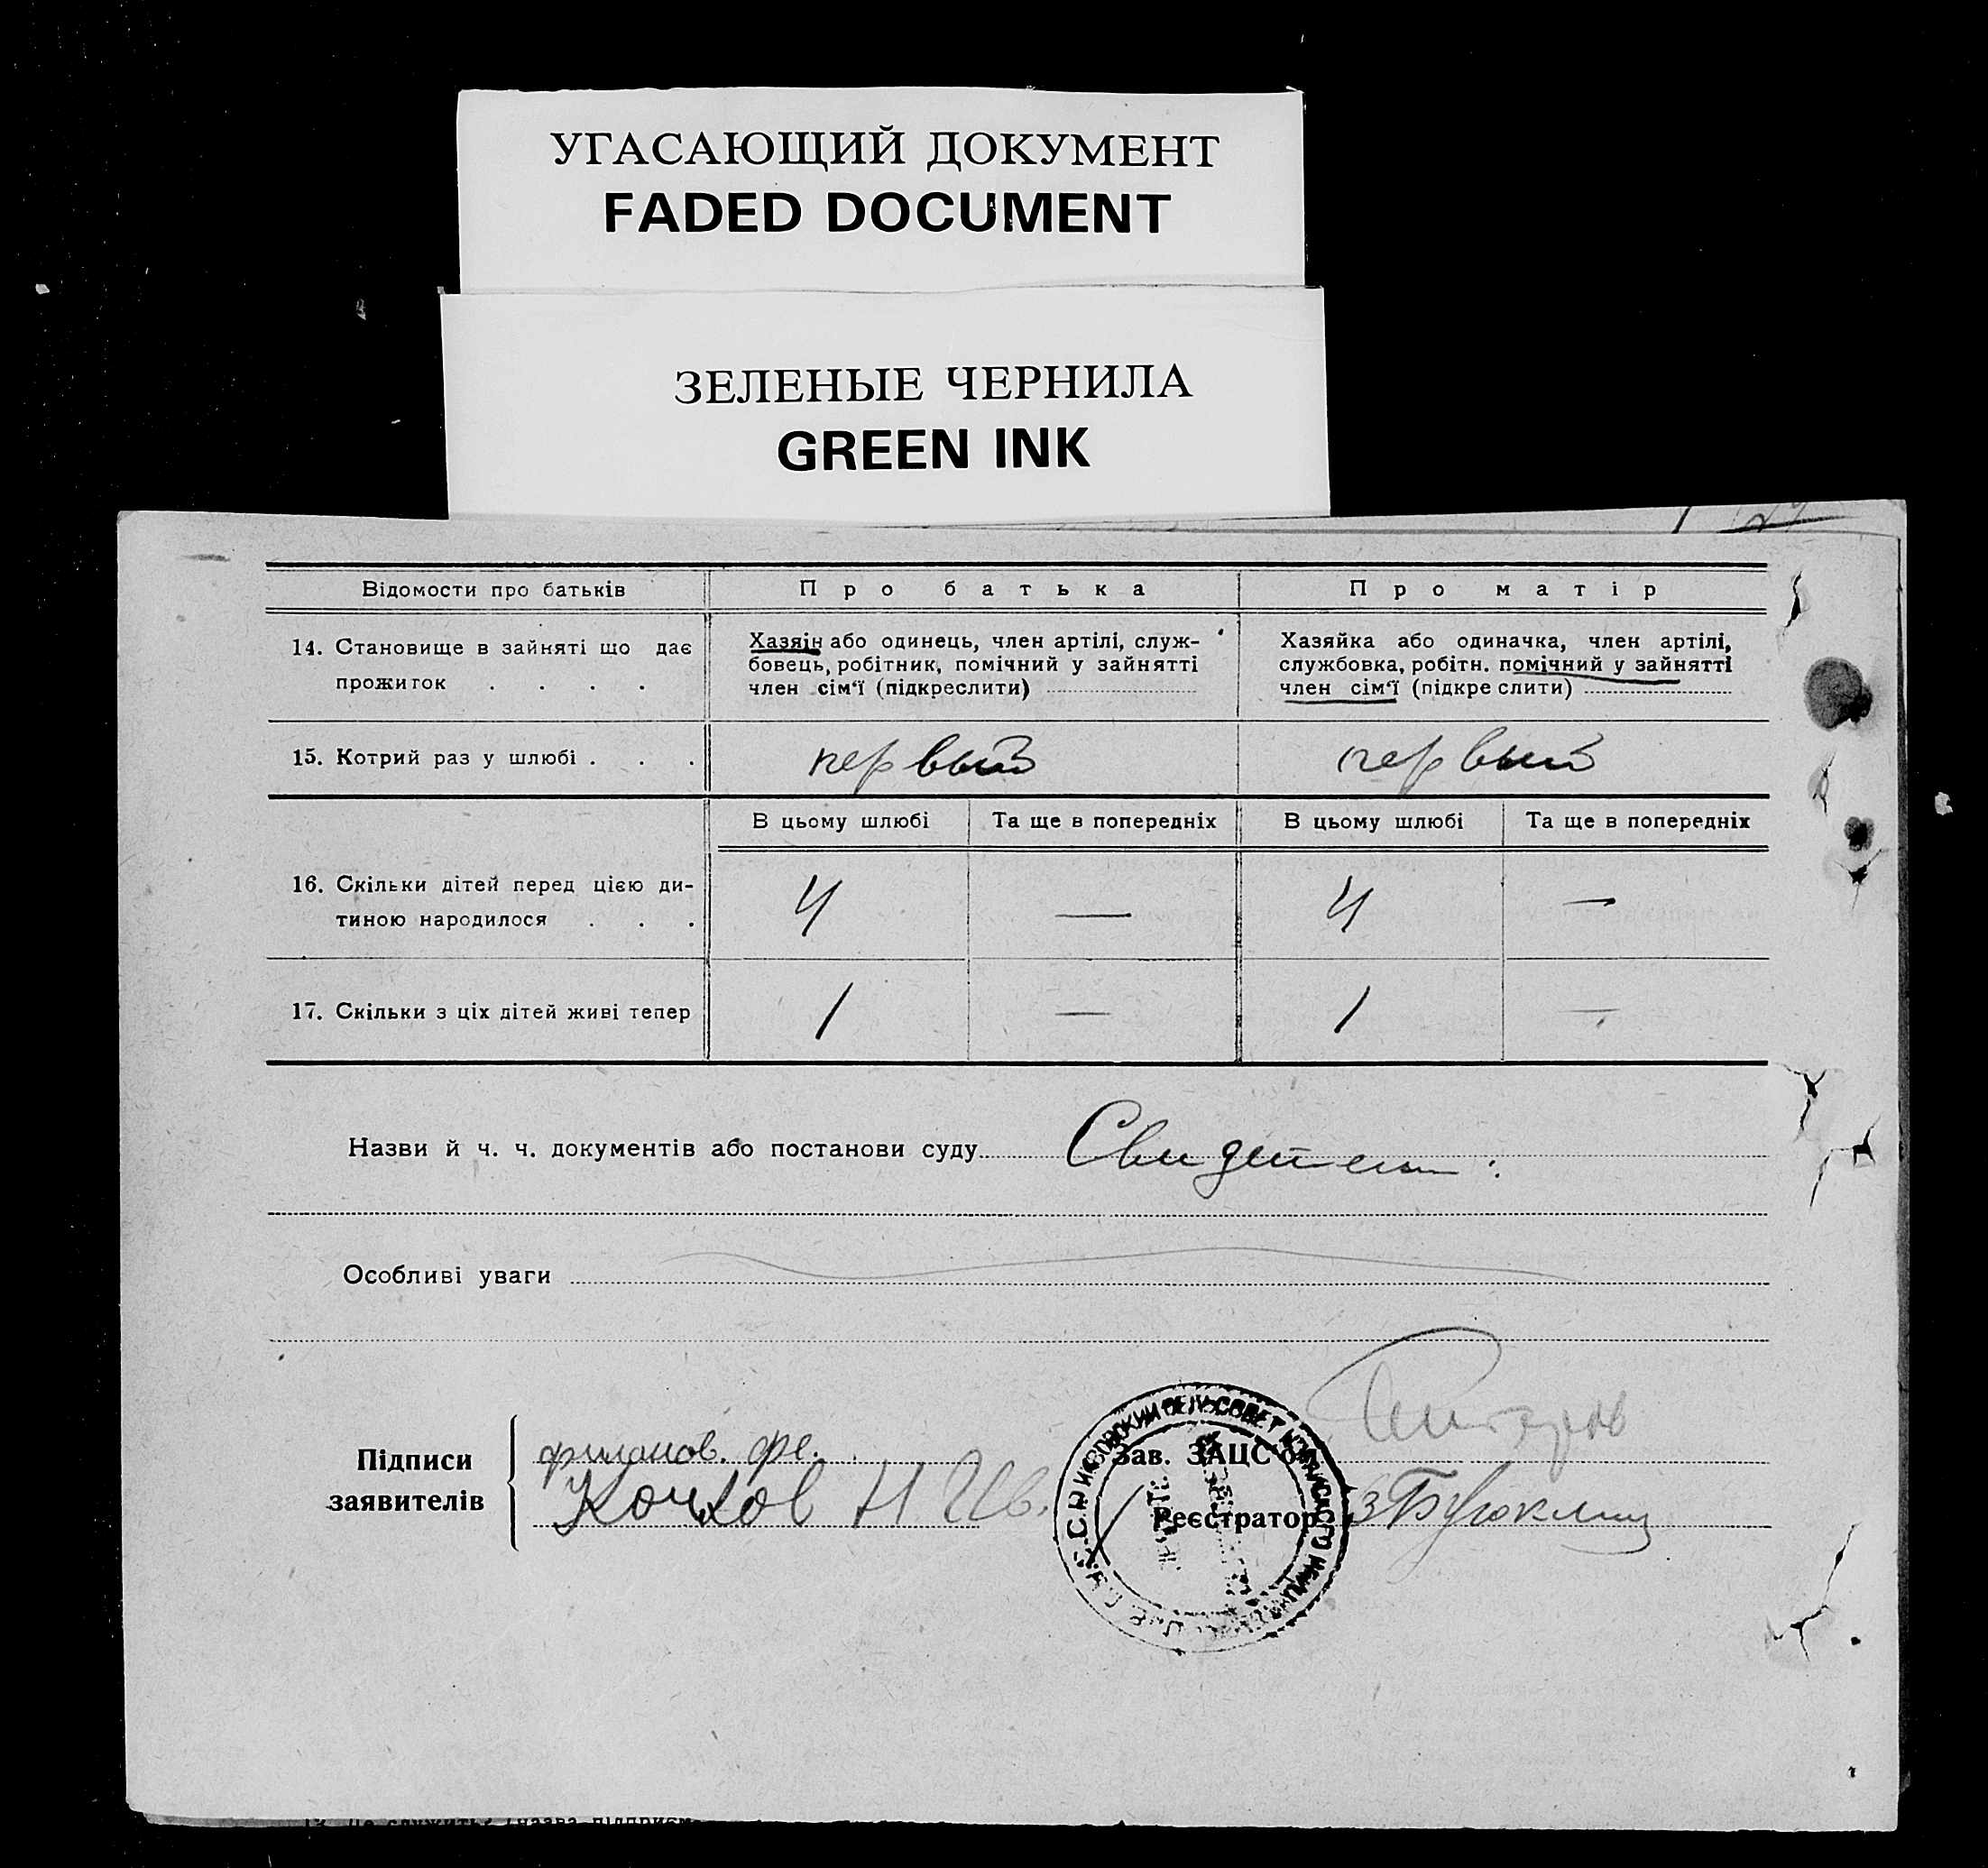 УГАСАЮЩИЙ ДОКУМЕНТ
FADED DOCUMENT
ЗЕЛЕНЫЕ ЧЕРНИЛА
GREEN INK
Відомости про батьків
Про батька
Про матір
14. Становище в зайняті що дає
прожиток . . . .
Хазяїн або одинець, член артілі, служ-
бовець, робітник, помічний у зайнятті
член сім‘ї (підкреслити)
Хазяйка або одиначка, член артілі,
службовка, робітн. помічний у зайнятті
член сім‘ї (підкреслити)
15. Котрий раз у шлюбі . . .
первый
первый
В цьому шлюбі
Та ще в попередніх
В цьому шлюбі
Та ще в попередніх
16. Скільки дітей перед цією ди-
тиною народилося . . .
4
—
4
—
17. Скільки з ціх дітей живі тепер
1
—
1
—
Назви й ч. ч. документів або постанови суду Свидетели :
Особливі уваги
Підписи
заявителів
Кочков Н Ив.
Зав. ЗАЦС'ом
Реєстратор